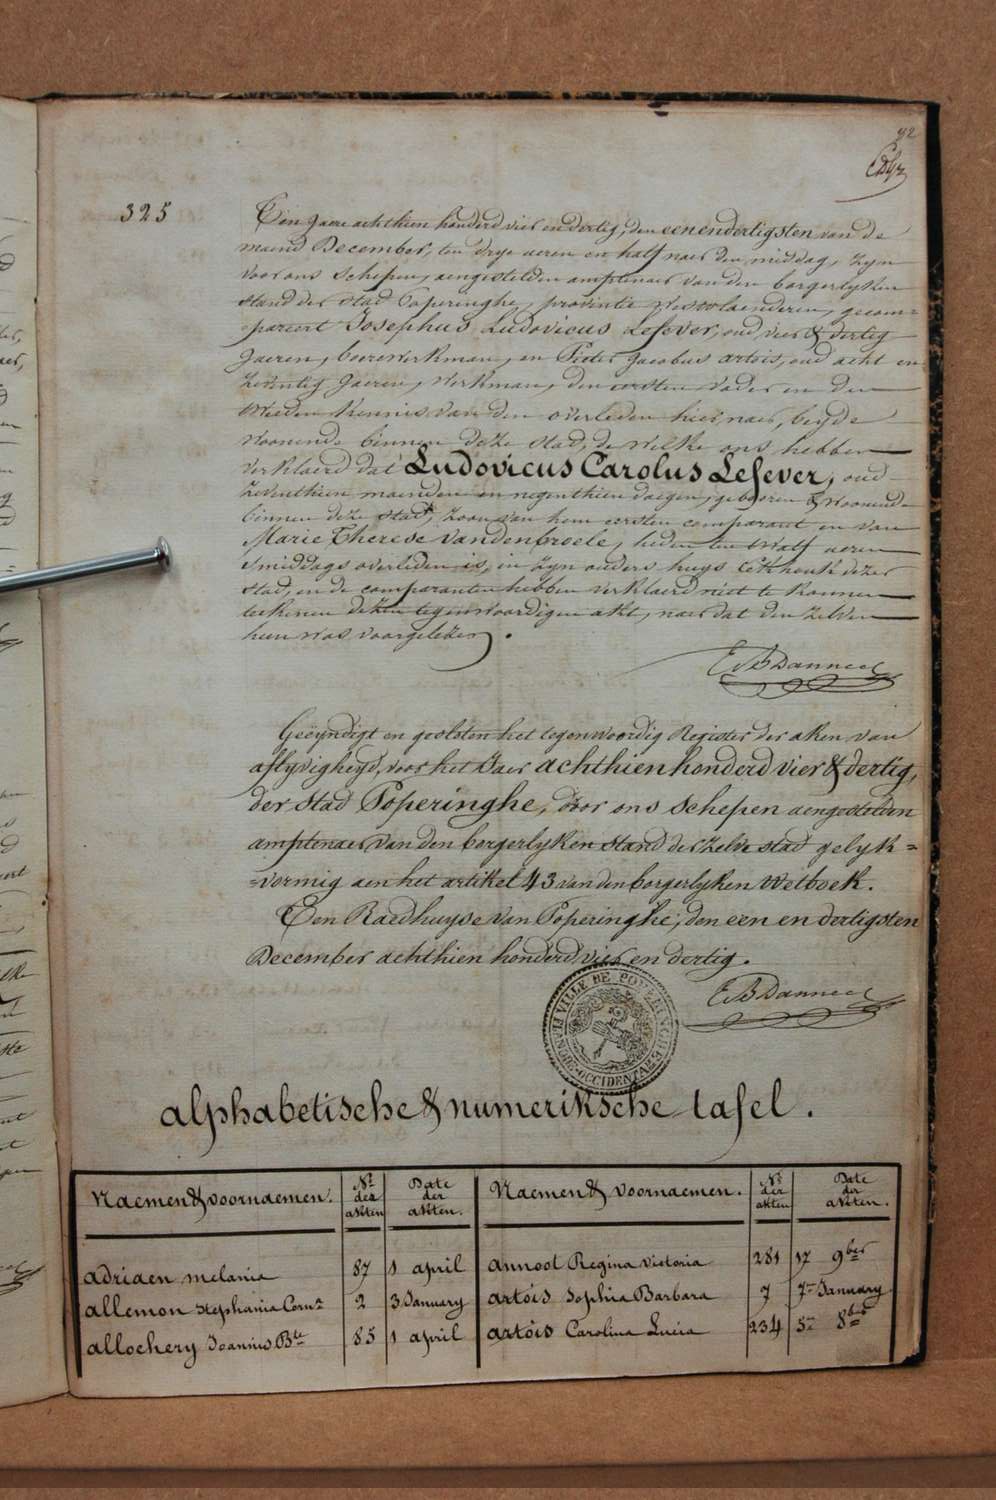 92
325
Ten jaere achthien honderd vier en dertig, den eenendertigsten van de
maend December, ten drye ueren en half naer den middag, zyn
voor ons schepen, aengestelden amptenaer van den borgerlyken
stand der stad Poperinghe, provintie Westvlaenderen, gecom=
=pareert Josephus Ludovicus Lefever, oud vier & dertig
jaeren, boerewerkman, en Pieter Jacobus artois, oud acht en
zeventig jaeren, werkman, den eersten vader en den
tweeden kennis van den overleden hier naer, beyde
woonende binnen deze stad, de welke ons hebben
verklaerd dat Ludovicus Carolus Lefever, oud
zeventhien maenden en negenthien daegen, gebooren & woonende
binnen deze stad, zoon van hem eersten comparant en van
Marie Therese Vandenbroele, heden ten twalf ueren
smiddags overleden is, in zyn ouders huys dezer
stad, en de comparanten hebben verklaerd niet te konnen
teekenen dezen tegenwoordigen akt, naer dat den zelven
hun was voorgelezen.
E B Danneel
Geëyndigt en gesloten het tegenwoordig Register der akten van
aflyvigheyd, voor het Jaer achthien honderd vier & dertig,
der stad Poperinghe, door ons schepen aengestelden
amptenaer van den borgerlyken stand der zelve stad gelyk=
=vormig aen het artikel 43 van den borgerlyken Wetboek.
Ten Raedhuyse van Poperinghe, den een en dertigsten
December achthien honderd vier en dertig.
E B Danneel
VILLE DE POPERINGHE
FLANDRE OCCIDENTALE
alphabetische & numeriksche tafel.
Naemen & voornaemen. Nº der akten Date der akten. Naemen & voornaemen. Nº der akten Date der akten.
adriaen melania 87 1 april annoot Regina Victoria 281 17 9ber
allemon Stephania Corna 2 3 January artois Sophia Barbara 7 7 January
allochery Joannes Bte 85 1 april artois Carolina Lucia 234 5 8ber